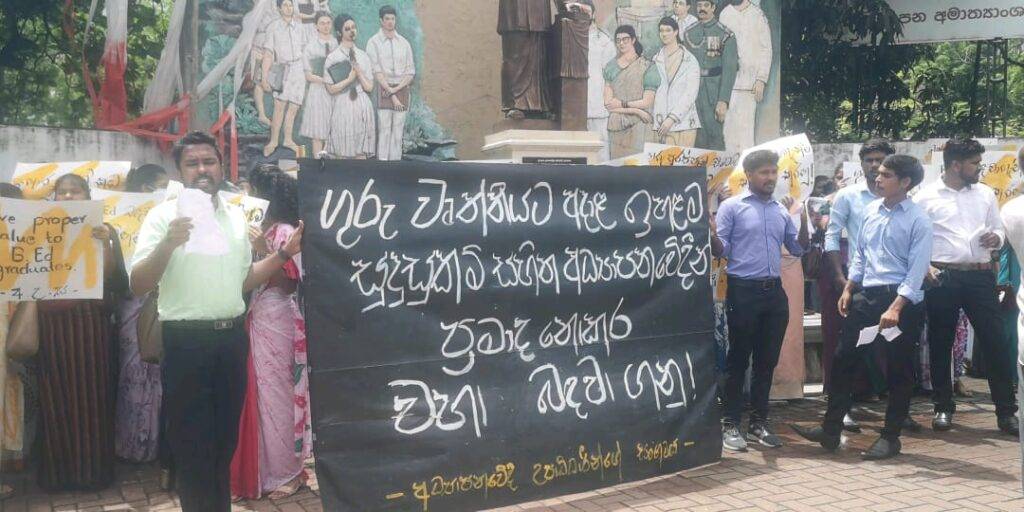 පන අමාත්‍යාංශ
ගුරු වෘත්තියට අදාළ ඉහළම
සුදුසුකම් සහිත අධ්‍යාපනවේදීන්
ප්‍රමාද නොකර
වහා බඳවා ගනු!
- අධ්‍යාපනවේදී උපාධිධාරීන්ගේ සංගමය -
ve proper
alue to
B. Ed
graduates.